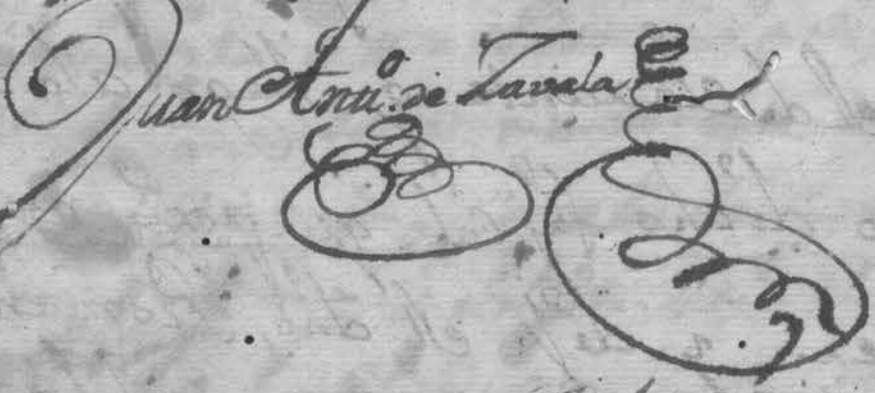 Juan Anttº. de Zavala